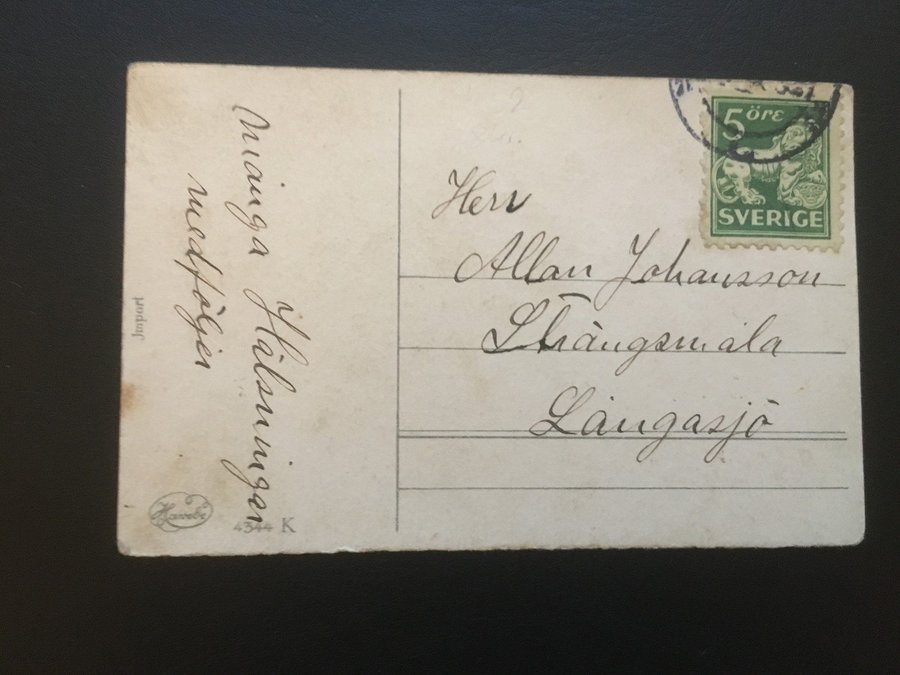 många Hälsningar
medföljer
Herr
Allan Johansson
Strångsmåla
Långasjö
5 öre
SVERIGE
Import
4344 K